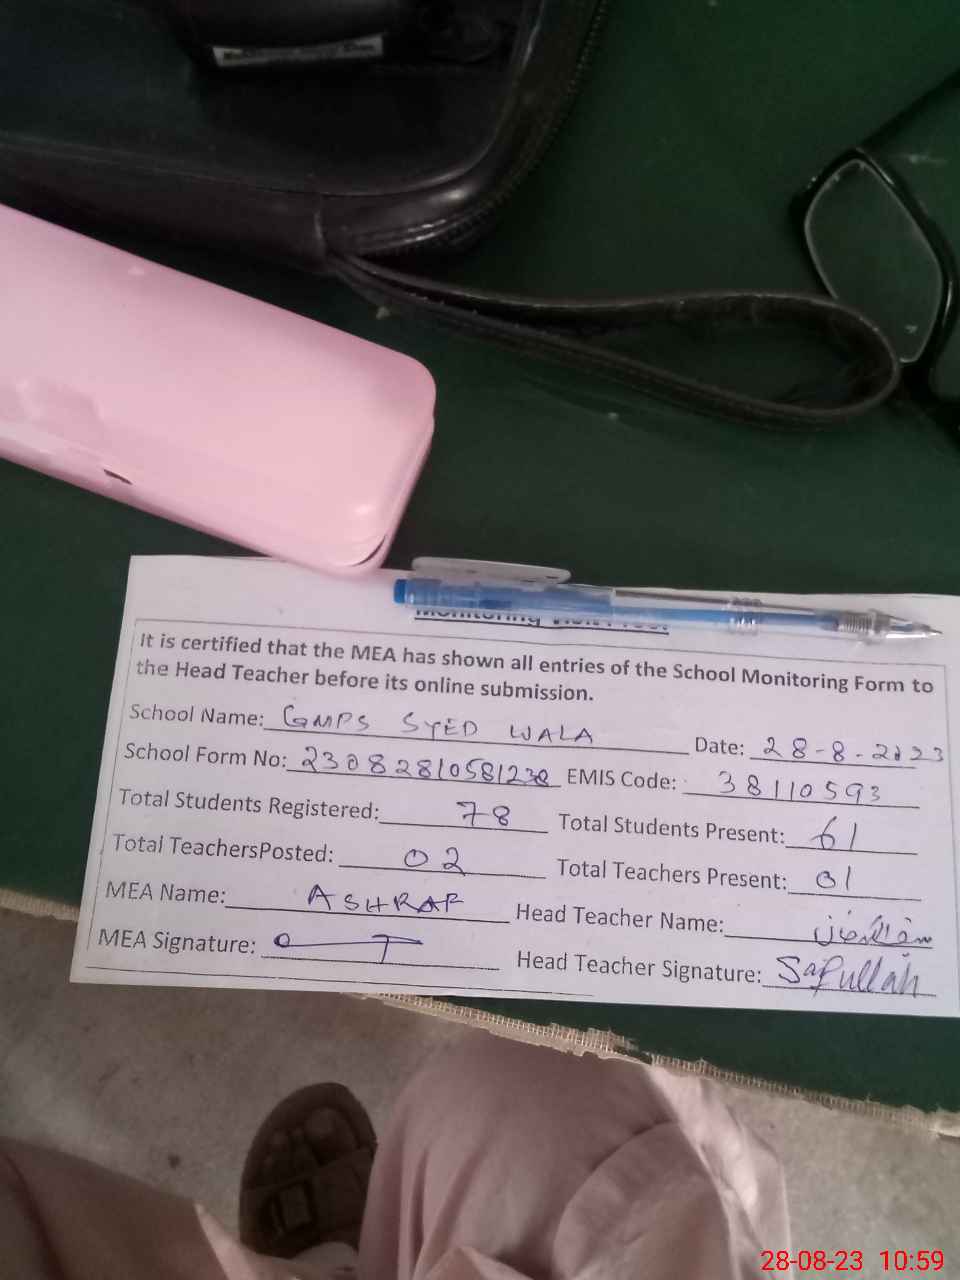 Monitoring Visit Proof
It is certified that the MEA has shown all entries of the School Monitoring Form to
the Head Teacher before its online submission.
School Name: GMPS SYED WALA Date: 28-8-2023
School Form No: EMIS Code: 38110593
Total Students Registered: 78 Total Students Present: 61
Total TeachersPosted: 02 Total Teachers Present: 01
MEA Name: ASHRAF Head Teacher Name:
MEA Signature: Head Teacher Signature: Safullah
28-08-23 10:59